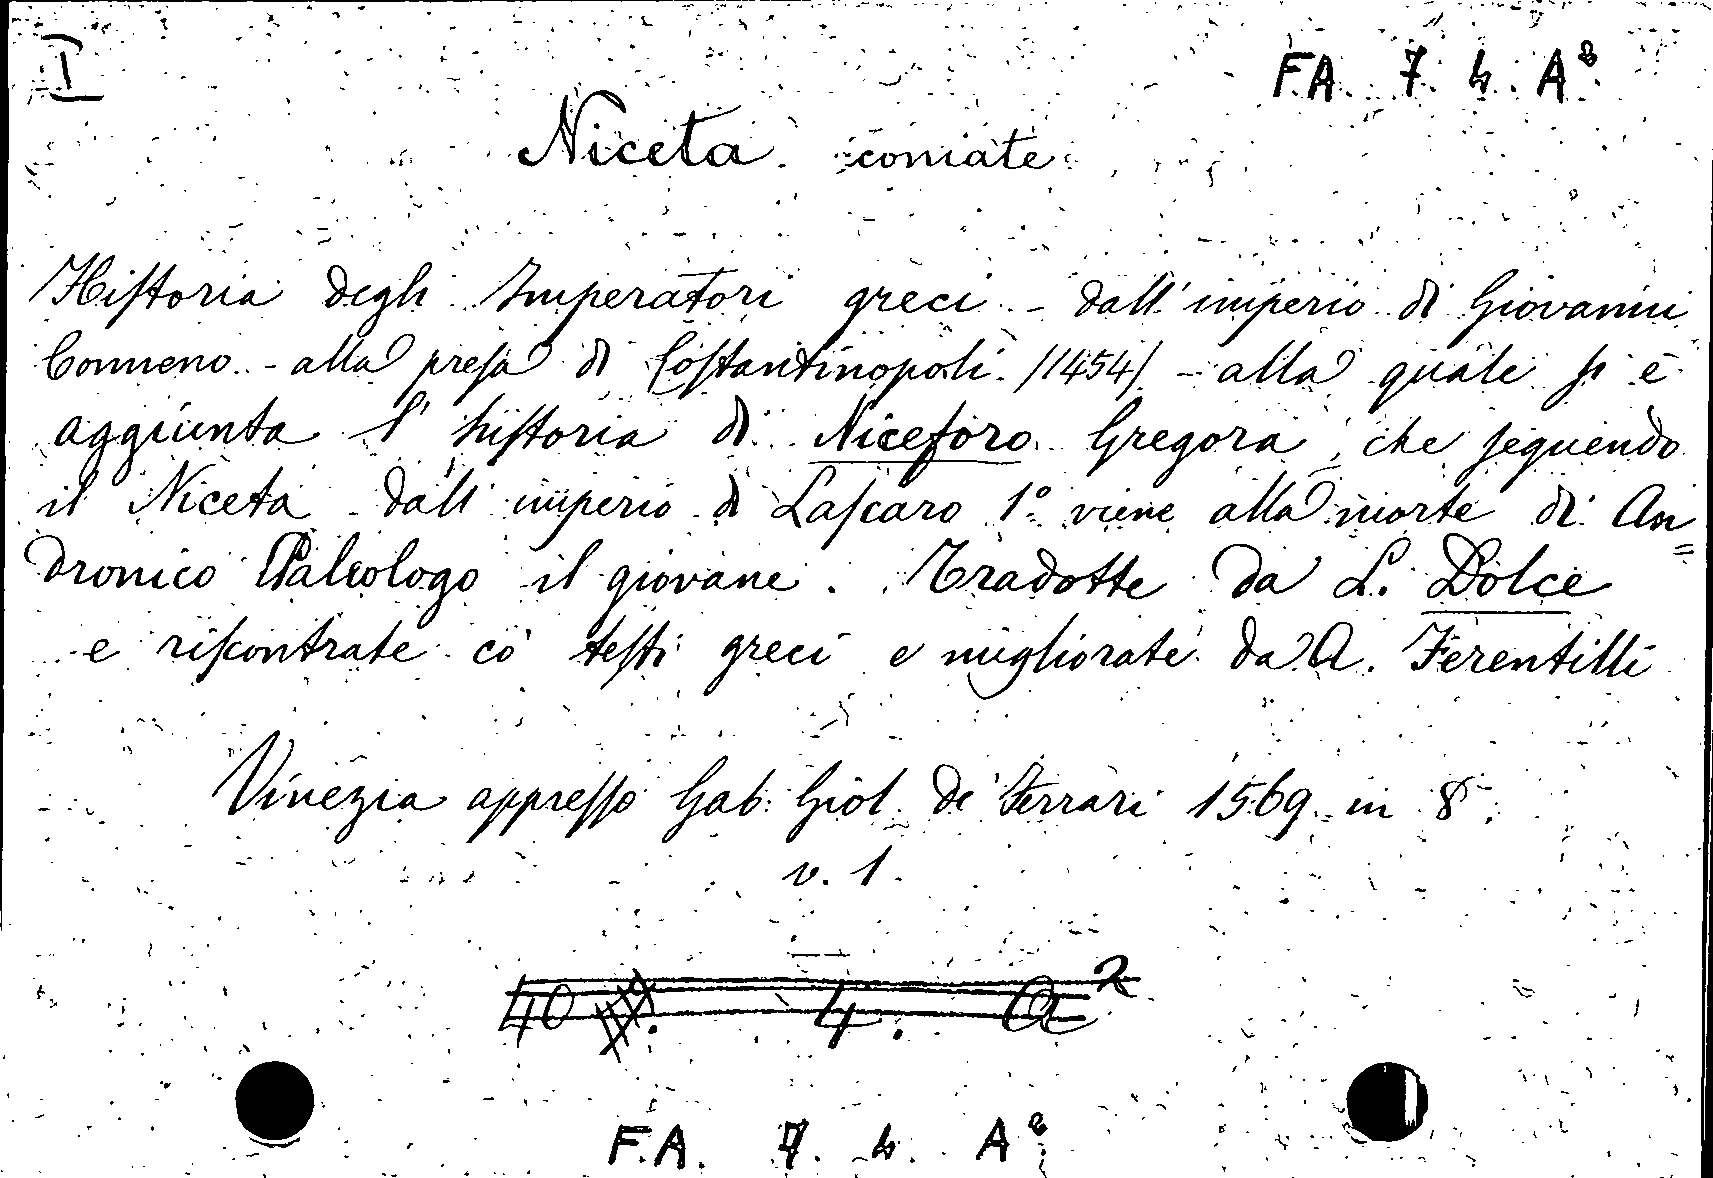 I
F.A. 7. 4. A⁸.
Niceta coniate
Historia degli Imperatori greci - dall'imperio di Giovanni
Conneno - alla presa di Costantinopoli /1454/ - alla quale si è
aggiunta l'historia di Niceforo Gregora, che seguendo
il Niceta dall'imperio di Lascaro 1º viene alla morte di An=
dronico Paleologo il giovane. Tradotte da L. Dolce
e riscontrate co' testi greci e migliorate da A. Ferentilli
Vinezia appresso Gab. Giol. de' Ferrari 1569 in 8º.
v. 1.
40 4. a
F.A. 7. 4. A⁸.